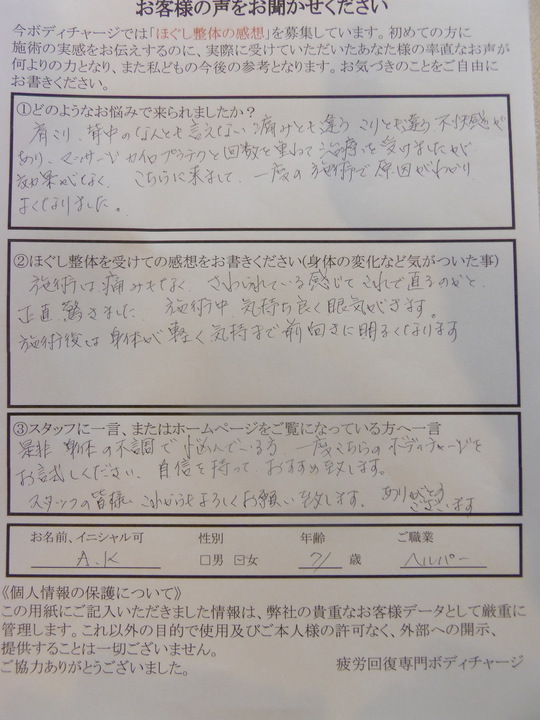 お客様の声をお聞かせください
今ボディチャージでは「ほぐし整体の感想」を募集しています。初めての方に
施術の実感をお伝えするのに、実際に受けていただいたあなた様の率直なお声が
何よりの力となり、また私どもの今後の参考となります。お気づきのことをご自由に
お書きください。
①どのようなお悩みで来られましたか？
肩こり、背中のなんとも言えない痛みとも違う こりとも違う 不快感が
あり、マッサージ カイロプラクテクと回数を重ねて治療を受けましたが
効果がなく、こちらに来まして、一度の施術で原因がわかり
よくなりました。
②ほぐし整体を受けての感想をお書きください(身体の変化など気がついた事)
施術は痛みもなく、さわられている感じで これで直るのかと、
正直驚きました。施術中、気持ち良く眠気がきます。
施術後は身体が軽く気持まで前向きに明るくなります
③スタッフに一言、またはホームページをご覧になっている方へ一言
是非 身体の不調で悩んでいる方、一度こちらのボディチャージを
お試しください、自信を持って おすすめ致します。
スタッフの皆様 これからもよろしくお願い致します。ありがとう
ございます
お名前、イニシャル可 性別 年齢 ご職業
A.K □男 ☑女 71 歳 ヘルパー
《個人情報の保護について》
この用紙にご記入いただきました情報は、弊社の貴重なお客様データとして厳重に
管理します。これ以外の目的で使用及びご本人様の許可なく、外部への開示、
提供することは一切ございません。
ご協力ありがとうございました。 疲労回復専門ボディチャージ